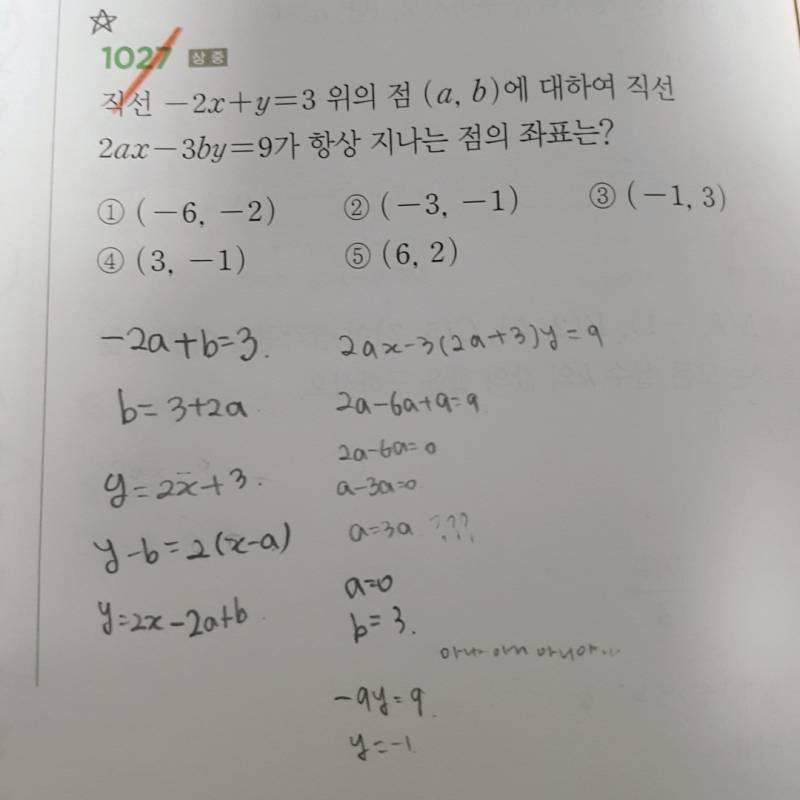 1027 상 중
직선 -2x+y=3 위의 점 (a, b)에 대하여 직선
2ax-3by=9가 항상 지나는 점의 좌표는?
① (-6, -2) ② (-3, -1) ③ (-1, 3)
④ (3, -1) ⑤ (6, 2)
-2a+b=3.
b=3+2a
y=2x+3.
y-b=2(x-a)
y=2x-2a+b
2ax-3(2a+3)y=9
2a-6a+9=9
2a-6a=0
a-3a=0
a=3a ???
a=0
b=3.
-9y=9.
y=-1